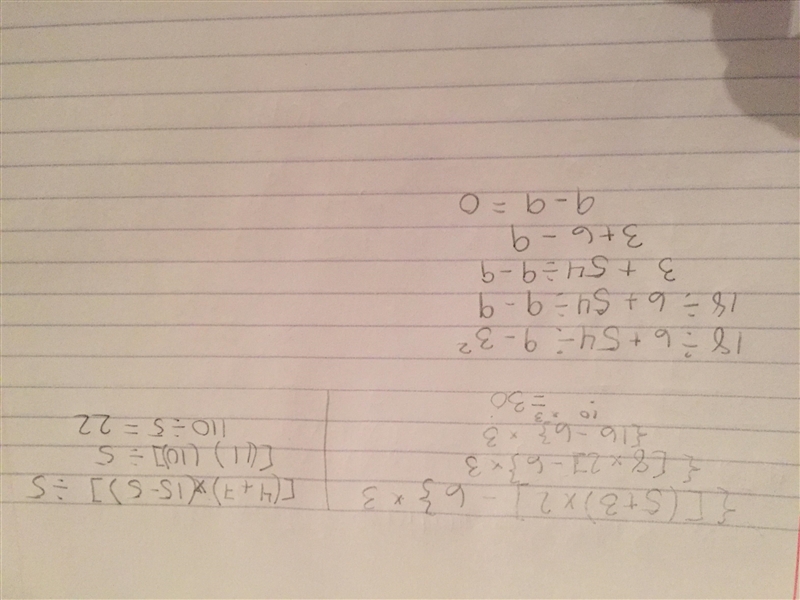 {[(5+3)×2] - 6} × 3
{[8 × 2] - 6} × 3
{16 - 6} × 3
10 × 3
= 30
[(4+7)×(15-5)] ÷ 5
[(11)(10)] ÷ 5
110 ÷ 5 = 22
18 ÷ 6 + 54 ÷ 9 - 3²
18 ÷ 6 + 54 ÷ 9 - 9
3 + 54 ÷ 9 - 9
3 + 6 - 9
9 - 9 = 0